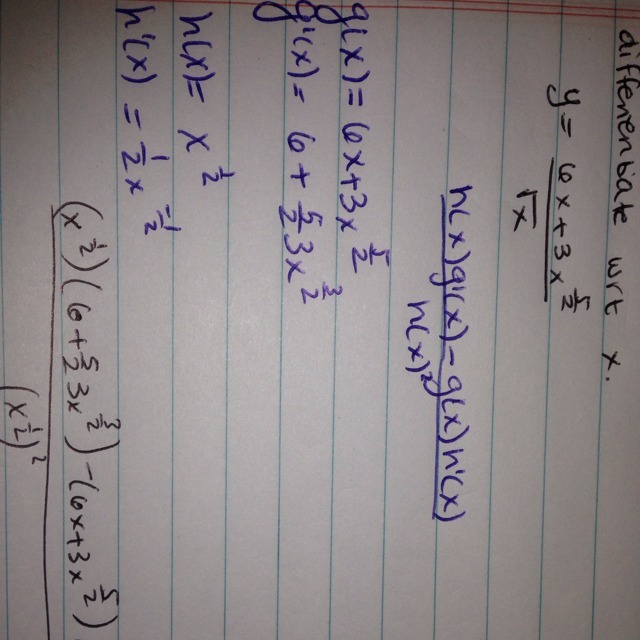 differentiate wrt x.
y = 6x+3x^5/2
√x
h(x)g'(x) - g(x)h'(x)
h(x)²
g(x) = 6x+3x^5/2
g'(x) = 6 + 5/2 3x^3/2
h(x) = x^1/2
h'(x) = 1/2 x^-1/2
(x^1/2)(6 + 5/2 3x^3/2) - (6x+3x^5/2)
(x^1/2)²